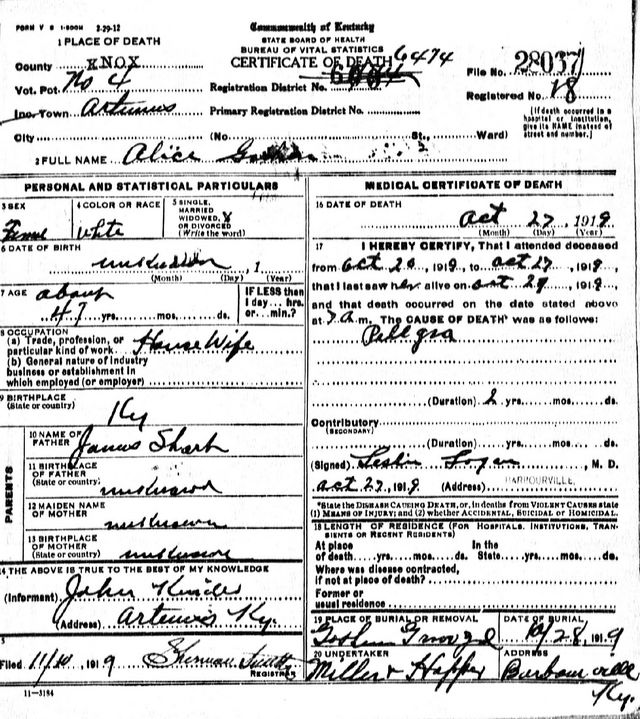 FORM V S 1-500M 2-29-12
Commonwealth of Kentucky
STATE BOARD OF HEALTH
BUREAU OF VITAL STATISTICS
CERTIFICATE OF DEATH 6474
1 PLACE OF DEATH
County KNOX
Vot. Pct. No 4
Inc. Town Artemus
City (No. St., Ward)
Registration District No.
Primary Registration District No.
File No. 28037
Registered No. 18
[If death occurred in a hospital or institution, give its NAME instead of street and number.]
2 FULL NAME Alice
PERSONAL AND STATISTICAL PARTICULARS
3 SEX
4 COLOR OR RACE White
5 SINGLE, MARRIED WIDOWED, OR DIVORCED (Write the word)
6 DATE OF BIRTH
(Month) (Day) , 1 (Year)
7 AGE about
47 yrs. mos. ds.
IF LESS than 1 day... hrs. or... min.?
8 OCCUPATION
(a) Trade, profession, or particular kind of work House Wife
(b) General nature of industry business or establishment in which employed (or employer)
9 BIRTHPLACE (State or country) Ky
PARENTS
10 NAME OF FATHER James
11 BIRTHPLACE OF FATHER (State or country)
12 MAIDEN NAME OF MOTHER unknown
13 BIRTHPLACE OF MOTHER (State or country) unknown
14 THE ABOVE IS TRUE TO THE BEST OF MY KNOWLEDGE
(Informant) John
(Address) Artemus Ky.
Filed 11/10 1919 Sherman
REGISTRAR
11-3184
MEDICAL CERTIFICATE OF DEATH
16 DATE OF DEATH
Oct 27, 1919
(Month) (Day) (Year)
17 I HEREBY CERTIFY, That I attended deceased
from Oct 20, 1919, to Oct 27, 1919,
that I last saw her alive on Oct 27, 1919
and that death occurred on the date stated above
at 7 a.m. The CAUSE OF DEATH* was as follows:
Pellgra
(Duration) 2 yrs. mos. ds.
Contributory (SECONDARY)
(Duration) yrs. mos. ds.
(Signed) Leslie Logan, M. D.
Oct 27, 1919 (Address) BARBOURVILLE.
*State the DISEASE CAUSING DEATH, or, in deaths from VIOLENT CAUSES state (1) MEANS OF INJURY; and (2) whether ACCIDENTAL, SUICIDAL or HOMICIDAL.
18 LENGTH OF RESIDENCE (FOR HOSPITALS, INSTITUTIONS, TRANSIENTS OR RECENT RESIDENTS)
At place of death yrs. mos. ds. In the State yrs. mos. ds.
Where was disease contracted, if not at place of death?
Former or usual residence
19 PLACE OF BURIAL OR REMOVAL
DATE OF BURIAL,
10/28, 1919
20 UNDERTAKER
Miller & Hopper
ADDRESS
Barbourville
Ky.